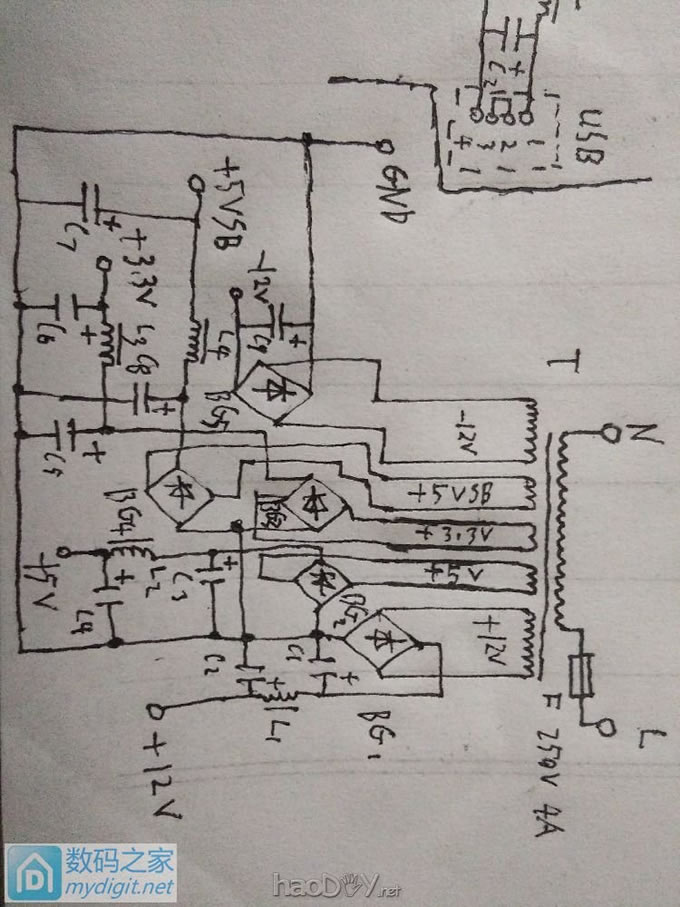 C2
+
USB
1
2
3
4
GND
+5VSB
-12V
+3.3V
C7
+
C6
+
L3
C8
+
L4
C9
+
BG5
C5
+
BG4
BG3
BG2
BG1
T
N
L
-12V
+5VSB
+3.3V
+5V
+12V
F 250V 4A
+5V
L2
+
C3
+
C4
C2
+
C1
+
L1
+12V
数码之家
mydigit.net
haoDIY.net